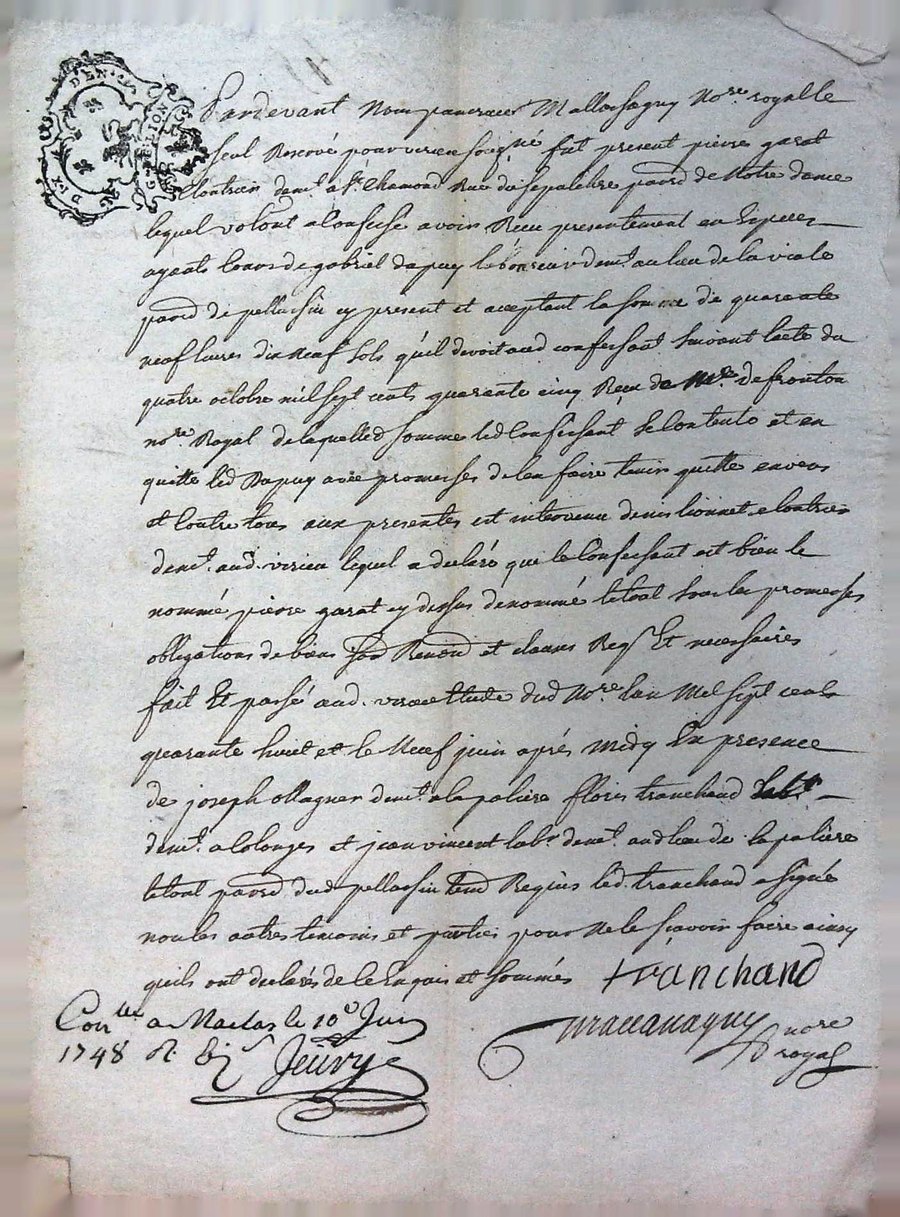 DIX DEN G. LION
Pardevant Nous Mallassagny No.re royalle
seul Rezervé pour virieu soug.né fut present pierre garat
Cloutrier dem.t a S.t Chamond Rue du sepulchre parr.d de Notre dame
lequel volont. a Confessé avoir Receu presentement en Espeses
ayants Cours de gabriel dupuy laboureur dem.t au lieu de la viale
parr.d de pellussin cy present et aceptant la somme de quarente
neuf livres dix neuf sols qu'il devoit aud confessant suivant lacte du
quatre octobre mil sept cents quarente cinq Receu de M.re defronton
no.re Royal de laquelle d somme led Confessant se Contente et en
quitte led Dupuy avec promesses de len faire tenir quitte envers
et Contre tous aux presentes est intervenu denis lionnet Cloutrier
dem.t aud. virieu lequel a declaré que le Confessant est bien le
nommé pierre garat cy dessus denommé le tout sous les promesses
obligations de biens Renond et clauses Req.s Et necessaires
fait Et passé aud. virieu Etude dud No.re Lan Mil sept cents
quarante huict et le Neuf juin aprés midy En presence
de joseph Magner dem.t a la paliere floris tranchand lab.r
dem.t a Colonges et jean vincent lab.r dem.t aud lieu de la paliere
le tout parr.d dud pellussin Requis led. tranchand a signé
non les autres temoins et parties pour Ne le sçavoir faire ainsy
quils ont declarés de ce Enquis et sommés tranchand
Con.lé a Maclas le 10.e Juin
1748 R. Mallassagny no.re
Jeury royal